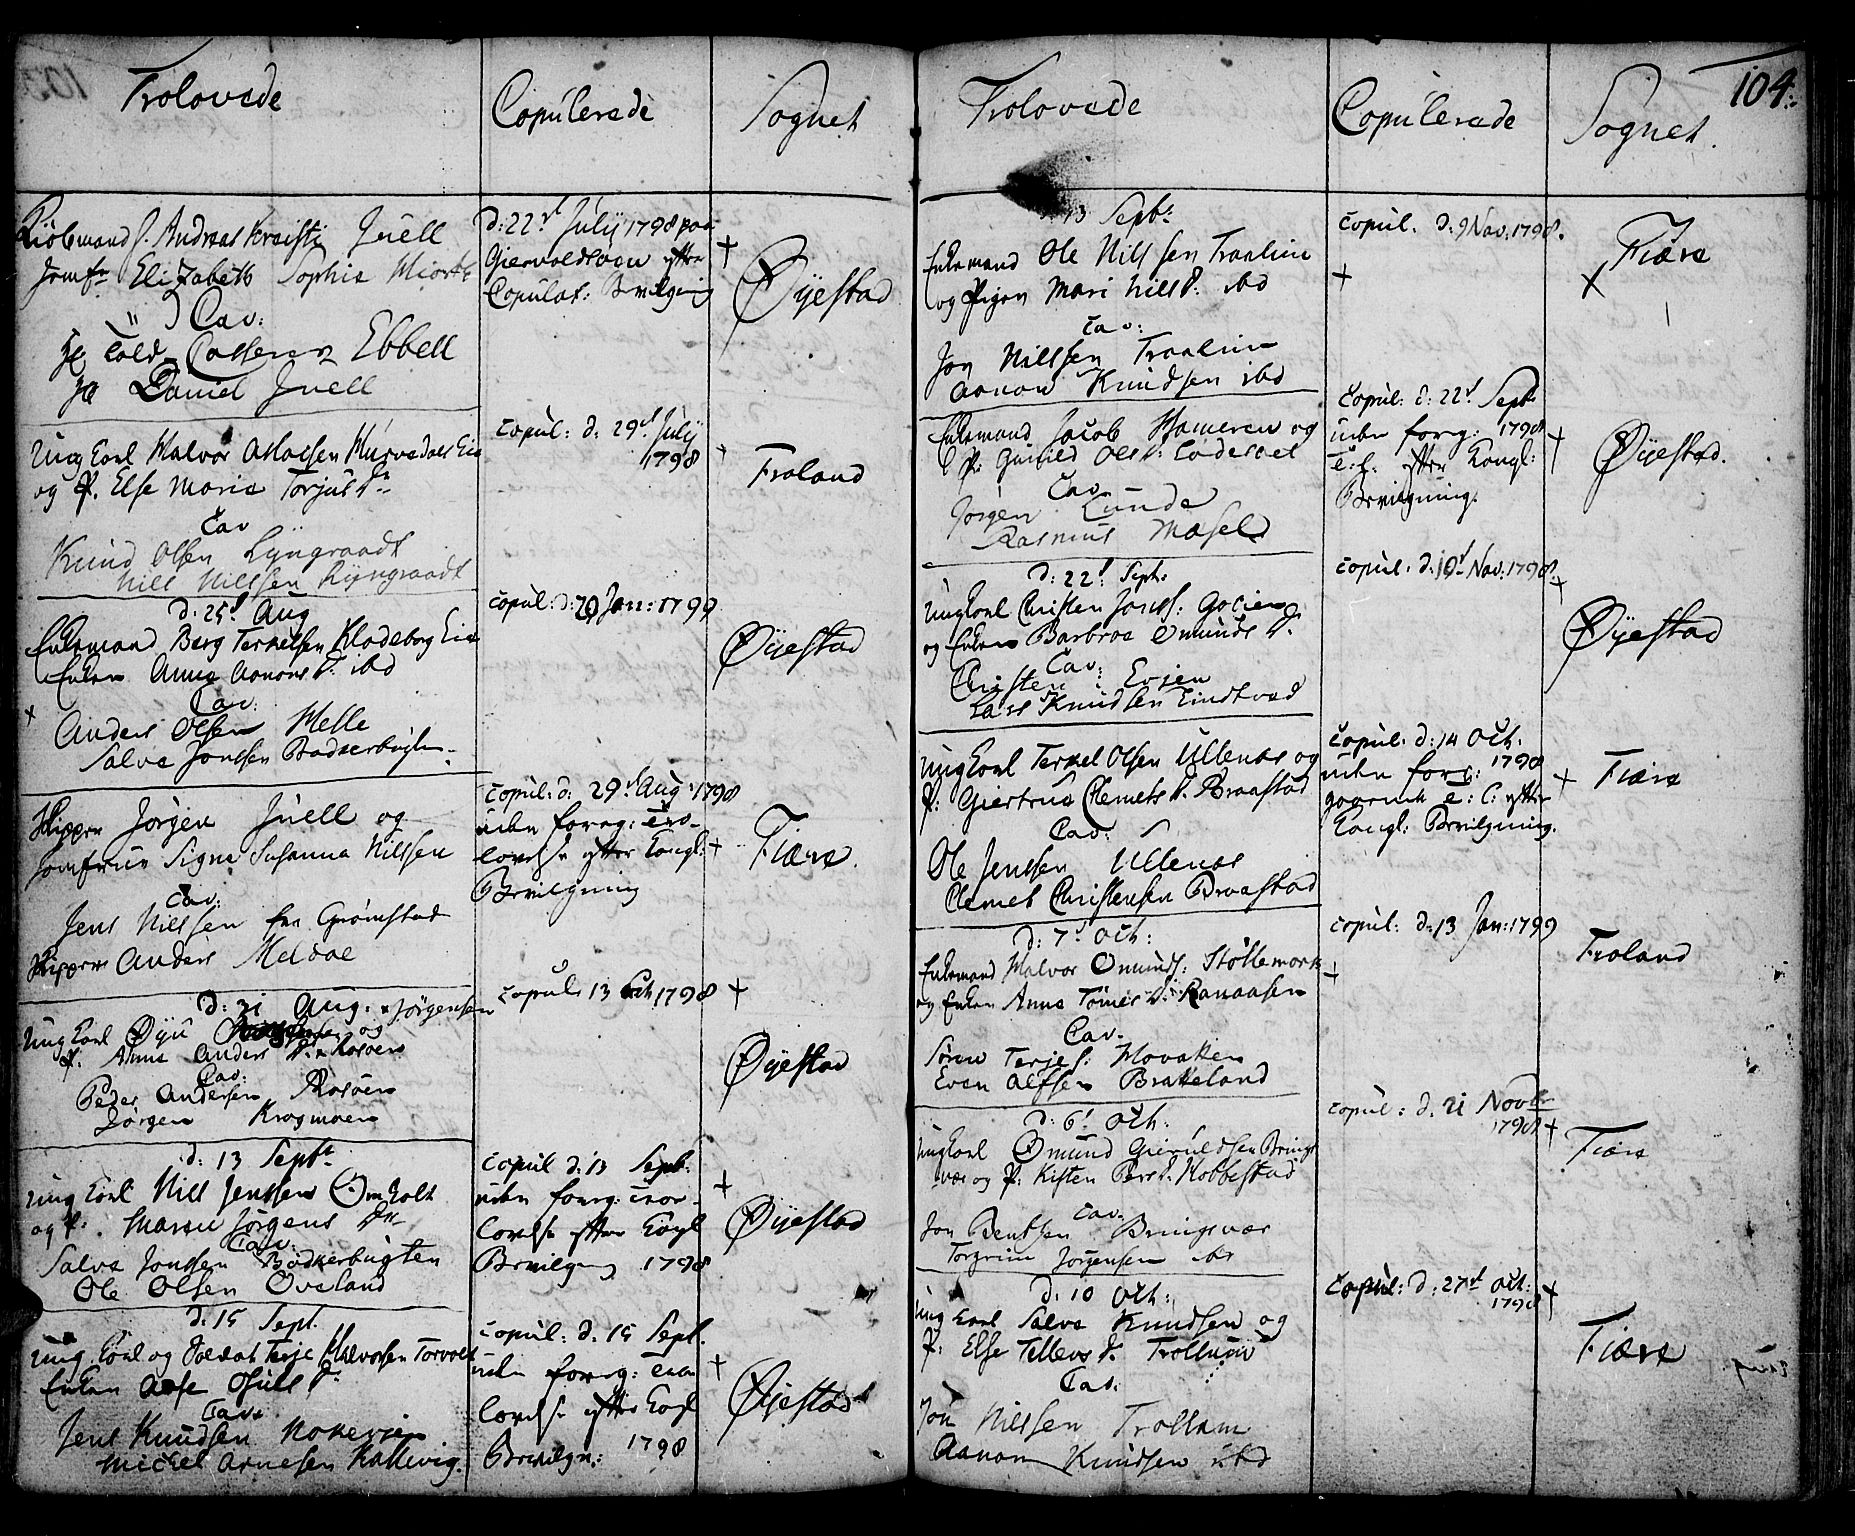 Trolovede
Copulerede
Sognet
Kiøbmand S. Andreas Kraisti Juell
Jomfr Elisabeth Sophie
Cav:
Told Casserer Ebbell
Daniel Juell
d: 22d July 1798 paa
efter
Copulat: Bevilgning
Øyestad
Ung Karl Halvor Aslacsen Hurvedals Eie
og P. Else Maria Torjus Dr
Cav
Knud Olsen Lyngraadt
Nils Nilssen Lyngraadt
Copul: d: 29d July
1798
Froland
d: 25d Aug
Enkemand Berg Terkelsen Klodeborg Eie
Enken Anne Aanons D. ibd
Cav:
Anders Olsen Helle
Salve Jonssen Bodkerbugten
Copul: d: 20 Jan: 1799
Øyestad
Skipper Jørgen Juell og
Jomfrue Signe Susanna Nilssen
Cav:
Jens Nilssen fra Grømstad
Skipper Anders Meldal
Copul: d: 29d Aug 1798
uden foreg: Tro-
lovelse efter Kongl:
Bevilgning
Fiære
d: 31 Aug. Jørgensen
Ung Karl Øyu og
P. Anne Anders D. Rosøen
Cav:
Peder Andersen Rosøen
Jørgen Krogmoen
Copul: 13 Oct 1798
Øyestad
d: 13 Septr
Ung Karl Nils Jenssen Omholt
og P. Maren Jørgens Dr
Cav:
Salve Jonssen Bodkerbugten
Ole Olsen Øveland
Copul d: 13 Septb:
uden foreg: Tror-
lovelse efter Kongl
Bevilgning 1798
Øyestad
d: 15 Sept.
Ung Karl og Soldat Terje Halvorsen
Enken Aase D.
Cav:
Jens Knudsen
Michel Arnesen Kallevig.
Copul: d. 15 Sept.
uden foreg: Troe
lovelse efter Kongl
Bevilgn: 1798
Øyestad
104.
Trolovede
Copulerede
Sognet.
13 Septr:
Enkemand Ole Nilssen
og Pigen Mari Nils D. ibd
Cav:
Jon Nilssen
Aanon Knudsen ibd
Copul. d: 9 Nov: 1798.
Fiære
Enkemand Jacob Hameren og
P: Gunild Ols D:
Cav
Jørgen Lunde
Rasmus Mosel
Copul: d: 22d Sept
uden foreg: 1798
T: l: efter Kongl:
Bevilgning.
Øyestad.
d: 22d Sept.
Ung Karl Christen Jenss:
og Enken Barbroe Omunds D.
Cav:
Christen Evjen
Lars Knudsen Lindtved
Copul. d: 10d Nov: 1798.
Øyestad
Ung Karl Terkel Olsen Ullenæs og
P: Giertrud Clemets D. Braastad
Cav:
Ole Jenssen Ullenæs
Clemet Christensen Braastad
Copul. d: 14 Oct.
uden foreg: 1798
gaaende T: l: efter
Kongl: Bevilgning.
Fiære
d: 7d Oct:
Enkemand Halvor Omunds:
og Enken Anne D. Ranaasen
Cav.
Søren Terjes: Hovatten
Even Alfsen Brakeland
Copul. d: 13 Jan: 1799
Froland
d: 6d Oct:
Ung Karl Omund Gieruldsen Brings
vær og P: Kisten Pers D. Robbestad
Cav.
Jon Bentsen Bringsvær
Torgrim Jørgensen ibd
Copul: d. 21 Novbr
1798
Fiære
d: 10 Oct:
Ung Karl Salve Knudsen og
P. Else Tellevs D.
Cav:
Jon Nilssen
Aanon Knudsen ibd
Copul: d: 27d Oct:
1798
Fiære